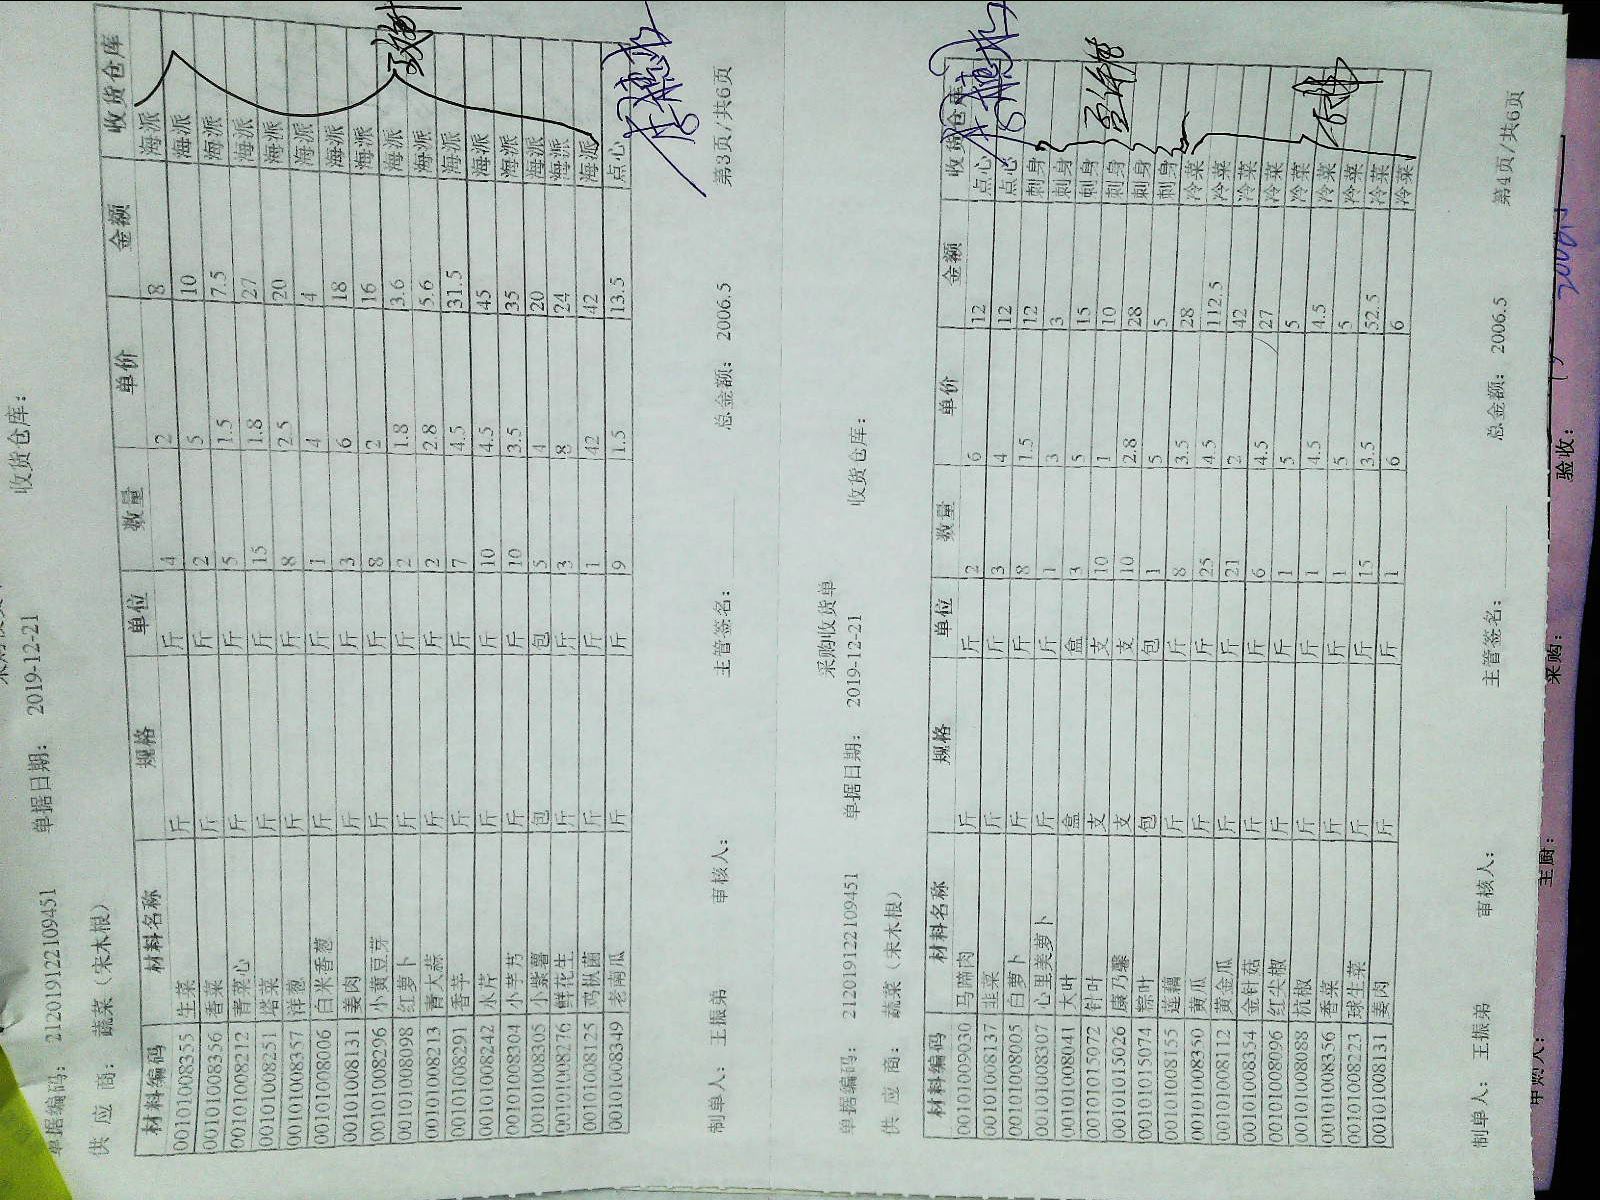 收货仓库：
单据编码： 2120191221 09451 单据日期： 2019-12-21
供 应 商： 蔬菜（宋木根）
材料编码 材料名称 规格 单位 数量 单价 金额 收货仓库
00101008355 生菜 斤 斤 4 2 8 海派
00101008356 香菜 斤 斤 2 5 10 海派
00101008212 青菜心 斤 斤 5 1.5 7.5 海派
00101008251 塔菜 斤 斤 15 1.8 27 海派
00101008357 洋葱 斤 斤 8 2.5 20 海派
00101008006 白米香葱 斤 斤 1 4 4 海派
00101008131 姜肉 斤 斤 3 6 18 海派
00101008296 小黄豆芽 斤 斤 8 2 16 海派
00101008098 红萝卜 斤 斤 2 1.8 3.6 海派
00101008213 青大蒜 斤 斤 2 2.8 5.6 海派
00101008291 香芋 斤 斤 7 4.5 31.5 海派
00101008242 水芹 斤 斤 10 4.5 45 海派
00101008304 小芋艿 斤 斤 10 3.5 35 海派
00101008305 小紫薯 包 包 5 4 20 海派
00101008276 鲜花生 斤 斤 3 8 24 海派
00101008125 鸡枞菌 斤 斤 1 42 42 海派
00101008349 老南瓜 斤 斤 9 1.5 13.5 点心
制单人： 王振弟 审核人： 主管签名： 总金额： 2006.5 第3页/共6页
采购收货单
单据编码： 2120191221 09451 单据日期： 2019-12-21 收货仓库：
供 应 商： 蔬菜（宋木根）
材料编码 材料名称 规格 单位 数量 单价 金额 收货仓库
00101009030 马蹄肉 斤 斤 2 6 12 点心
00101008137 韭菜 斤 斤 3 4 12 点心
00101008005 白萝卜 斤 斤 8 1.5 12 刺身
00101008307 心里美萝卜 斤 斤 1 3 3 刺身
00101008041 大叶 盒 盒 3 5 15 刺身
00101015072 针叶 支 支 10 1 10 刺身
00101015026 康乃馨 支 支 10 2.8 28 刺身
00101015074 粽叶 包 包 1 5 5 刺身
00101008155 莲藕 斤 斤 8 3.5 28 冷菜
00101008350 黄瓜 斤 斤 25 4.5 112.5 冷菜
00101008112 黄金瓜 斤 斤 21 2 42 冷菜
00101008354 金针菇 斤 斤 6 4.5 27 冷菜
00101008096 红尖椒 斤 斤 1 5 5 冷菜
00101008088 杭椒 斤 斤 1 4.5 4.5 冷菜
00101008356 香菜 斤 斤 1 5 5 冷菜
00101008223 球生菜 斤 斤 15 3.5 52.5 冷菜
00101008131 姜肉 斤 斤 1 6 6 冷菜
制单人： 王振弟 审核人： 主管签名： 总金额： 2006.5 第4页/共6页
申购人： 主厨： 采购： 验收：